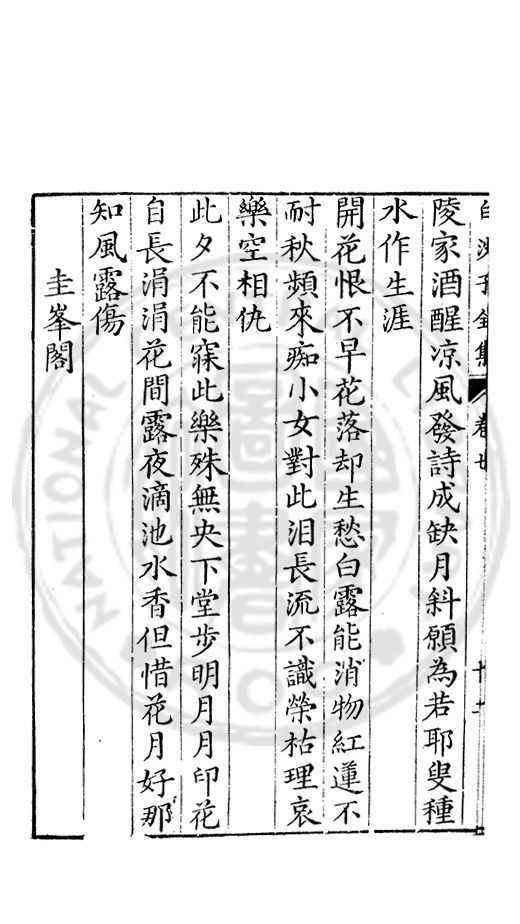 陵家酒醒凉風發詩成缺月斜願為若耶叟種
水作生涯
開花恨不早花落却生愁白露能消物紅蓮不
耐秋頻來痴小女對此泪長流不識榮枯理哀
樂空相仇
此夕不能寐此樂殊無央下堂步明月月印花
自長涓涓花間露夜滴池水香但惜花月好那
知風露傷
圭峯閣